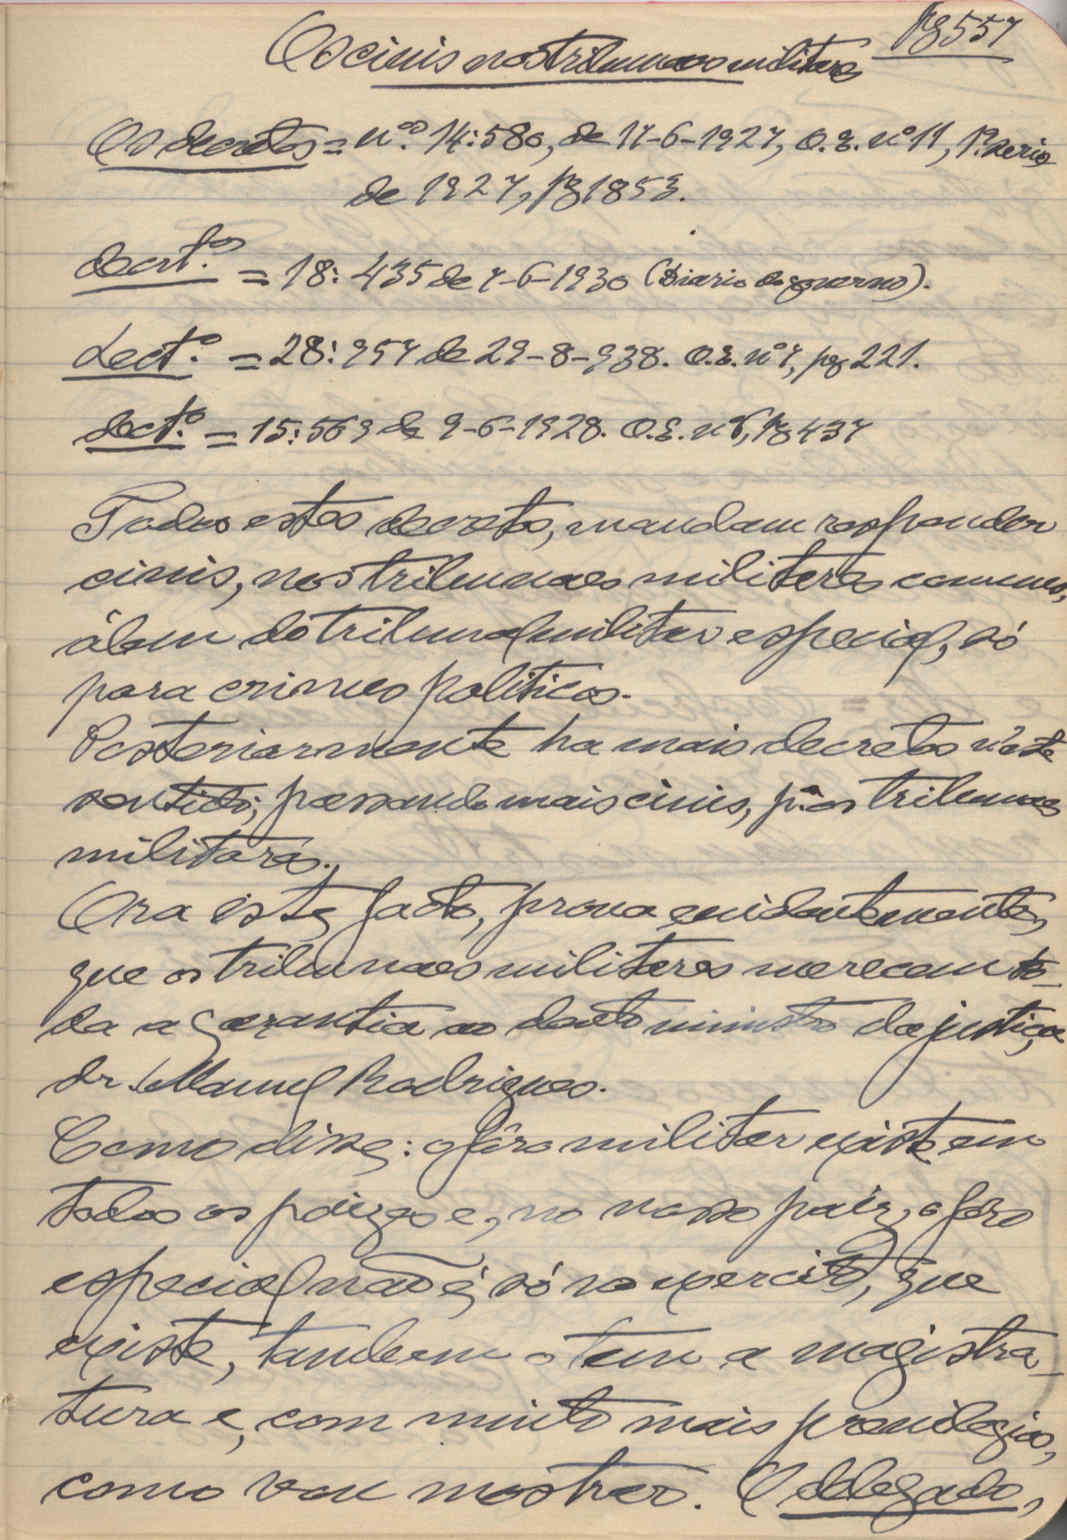 pg 557
Os civis nos tribunaes militares
Os decretos = nos. 14:580, de 17-6-1927, O.E. nº 11, 1ª serie,
de 1927, pg 1853.
decrt.os = 18:435 de 7-6-1930 (Diario do governo).
Dect.º = 28:957 de 29-8-938. O.E. nº 7, pg 221.
dect.º = 15:569 de 9-6-1928. O.E. nº 6, pg 437
Todos estes decretos, mandam responder
civis, nos tribunaes militares comuns,
álem do tribunal militar especial, só
para crimes politicos.
Posteriormente ha mais decretos n'este
sentido; passando mais civis, pª os tribunaes
militares.
Ora iste facto, prova evidentemente,
que os tribunaes militares merecem to-
da a garantia ao douto ministro da justiça,
dr. Manuel Rodrigues.
Como disse: o fôro militar existe em
todos os paizes e, no nosso paiz, o fôro
especial não é, só no exercito, que
existe, tambem o tem a magistra-
tura e, com muito mais previlegios,
como vou mostrar. O delegado,